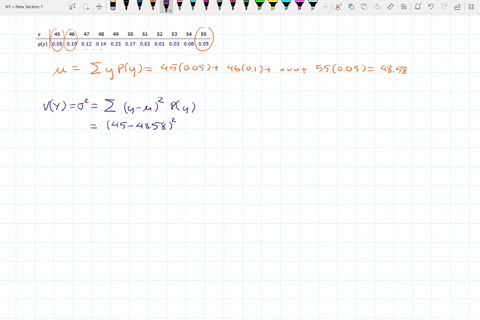 IVI » New Section 1
y 45 46 47 48 49 50 51 52 53 54 55
p(y) 0.05 0.10 0.12 0.14 0.25 0.17 0.02 0.01 0.03 0.06 0.05
μ = Σ y P(y) = 45(0.05) + 46(0.1) + ooo + 55(0.05) = 48.58
V(Y) = σ² = Σ (y-μ)² P(y)
= (45-48.58)²